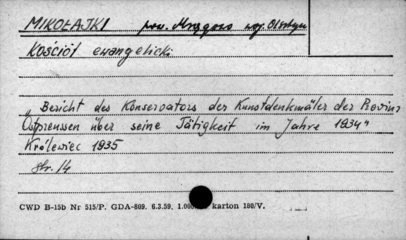 MIKOŁAJKI pow. Mrągowo woj. Olsztyn
Kościół ewangelicki
„Bericht des Konservators der Kunstdenkmäler der Provinz
Ostpreussen über seine Tätigkeit im Jahre 1934"
Królewiec 1935
str. 14
CWD B-15b Nr 515/P. GDA-609. 6.3.59. 1.000 karton 180/V.